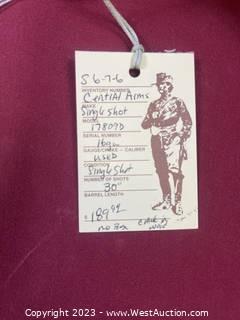 S 6-7-6
INVENTORY NUMBER
Central Arms
MAKE
Single Shot
MODEL
17809D
SERIAL NUMBER
16ga
GAUGE/CHOKE - CALIBER
USED
CONDITION
Single Shot
NUMBER OF SHOTS
30"
BARREL LENGTH
$ 189.99
no Box
Crack in
Copyright 2023 - www.WestAuction.com